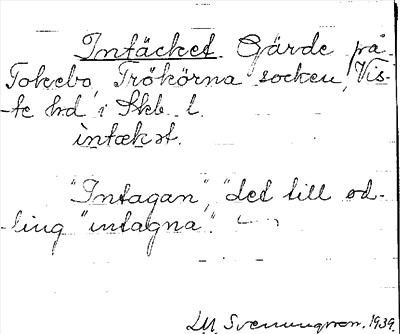 Intäcket. Gärde på
Tokebo, Trökörna socken, Vis-
-te hd i Skb. l.
intækət.
"Intagan", "det till od-
-ling "intagna".
LM. Svenungsson. 1939.